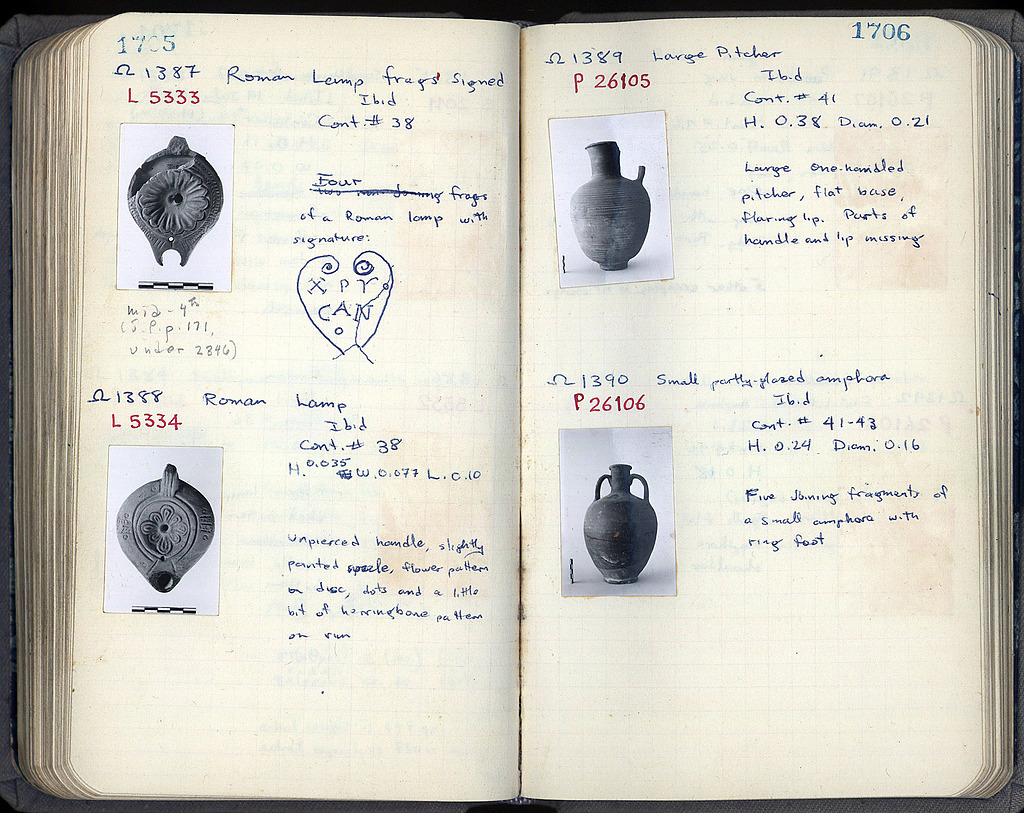 1705
Ω 1387 Roman Lamp frags' Signed
L 5333
Ibid
Cont. # 38
Four
two non-joining frags
of a Roman lamp with
signature:
Χ Ρ Υ
C A N
Ο
mid-4th
(J.P. p. 171,
under 2846)
Ω 1388 Roman Lamp
L 5334
Ibid
Cont. # 38
H. 0.035 W. 0.077 L. 0.10
Unpierced handle, slightly
pointed nozzle, flower pattern
on disc, dots and a little
bit of herringbone pattern
on rim
1706
Ω 1389 Large Pitcher
P 26105
Ibid
Cont. # 41
H. 0.38 Diam. 0.21
Large one-handled
pitcher, flat base,
flaring lip. Parts of
handle and lip missing
Ω 1390 Small partly-glazed amphora
P 26106
Ibid
Cont. # 41-43
H. 0.24 Diam. 0.16
Five joining fragments of
a small amphora with
ring foot